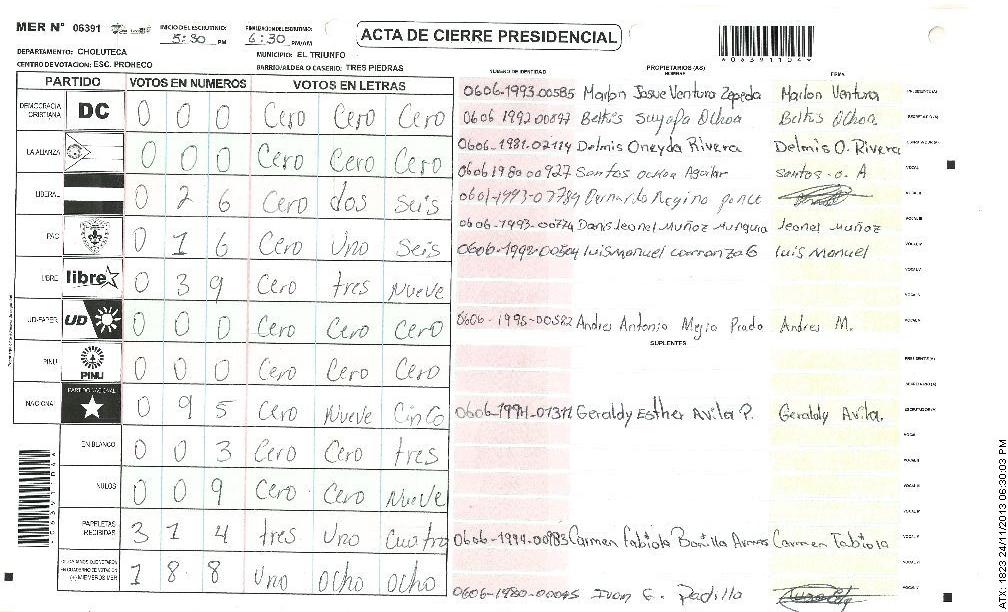 MER N° 06391 INICIO DEL ESCRUTINIO: 5:30 PM FINALIZACION DEL ESCRUTINIO: 6:30 PM/AM ACTA DE CIERRE PRESIDENCIAL
DEPARTAMENTO: CHOLUTECA MUNICIPIO: EL TRIUNFO *063911044*
CENTRO DE VOTACION: ESC. PROHECO BARRIO/ALDEA O CASERIO: TRES PIEDRAS
PARTIDO VOTOS EN NUMEROS VOTOS EN LETRAS
DEMOCRACIA CRISTIANA DC 0 0 0 Cero Cero Cero
LA ALIANZA 0 0 0 Cero Cero Cero
LIBERAL 0 2 6 Cero dos seis
PAC 0 1 6 Cero Uno Seis
LIBRE libre 0 3 9 Cero tres Nueve
UD-FAPER UD 0 0 0 Cero Cero Cero
PINU PINU 0 0 0 Cero Cero Cero
NACIONAL PARTIDO NACIONAL 0 9 5 Cero Nueve Cinco
EN BLANCO 0 0 3 Cero Cero tres
NULOS 0 0 9 Cero Cero Nueve
PAPELETAS RECIBIDAS 3 1 4 tres Uno Cuatro
CIUDADANOS QUE VOTARON EN CUADERNO DE VOTACION (+) MIEMBROS MER 1 8 8 Uno ocho ocho
NUMERO DE IDENTIDAD PROPIETARIOS (AS) NOMBRE FIRMA
0606-1993-00585 Marlon Josue Ventura Zepeda Marlon Ventura PRESIDENTE(A)
0606 1992 00897 Beltis Suyapa Ochoa Beltis Ochoa SECRETARIO (A)
0606-1981-02114 Delmis Oneyda Rivera Delmis O. Rivera ESCRUTADOR(A)
0606 1980 00927 Santos ochoa Aguilar Santos - o. A VOCAL I
0601-1993-07789 Bernardo Regino ponce VOCAL II
0606-1993-00774 Danis Jeonel Muñoz Munguia Jeonel Muñoz VOCAL III
0606-1992-00504 luis Manuel carranza G luis Manuel VOCAL IV
VOCAL V
0606-1995-00582 Andres Antonio Mejia Prado Andres M.
SUPLENTES
PRESIDENTE(A)
SECRETARIO(A)
Geraldy Esther Avila P. Geraldy Avila. ESCRUTADOR(A)
VOCAL I
VOCAL II
VOCAL III
VOCAL IV
0606-1994-00983 Carmen Fabiola Bonilla Carmen Fabiola VOCAL V
0606-1980-00045 Ivan G. Padilla
ATX: 1823 24/11/2013 06:30:03 PM